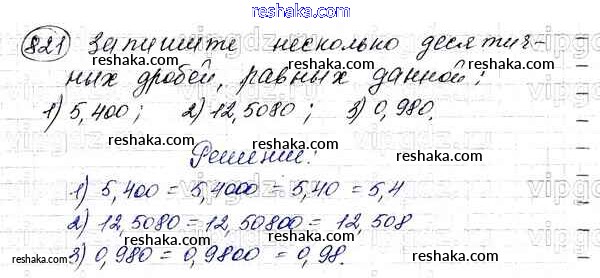 reshaka.com
821 Запишите несколько десятич-
ных дробей, равных данной:
reshaka.com
1) 5,400; 2) 12,5080; 3) 0,980.
reshaka.com reshaka.com
Решение:
reshaka.com
1) 5,400 = 5,4000 = 5,40 = 5,4
reshaka.com
2) 12,5080 = 12,50800 = 12,508
reshaka.com reshaka.com
3) 0,980 = 0,9800 = 0,98.
reshaka.com